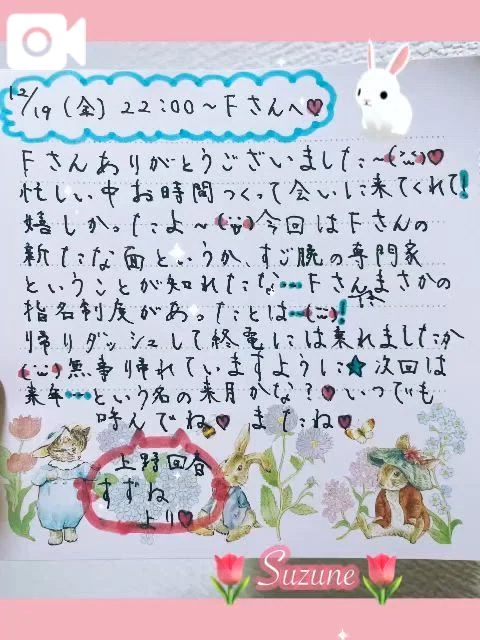 12/19(金) 22:00～Fさんへ♥
Fさんありがとうございました～(¨̮)♥
忙しい中お時間つくって会いに来てくれて!
嬉しかったよ～(¨̮)今回はFさんの
新たな面というか、すご腕の専門家
ということが知れたな…Fさんまさかの
指名制度があったとは…(¨̮)!
帰りダッシュして終電には乗れましたか
(¨̮)無事帰れていますように★次回は
来年…という名の来月かな?♥いつでも
呼んでね♥またね♥
上野回春
すずね
より♡
Suzune